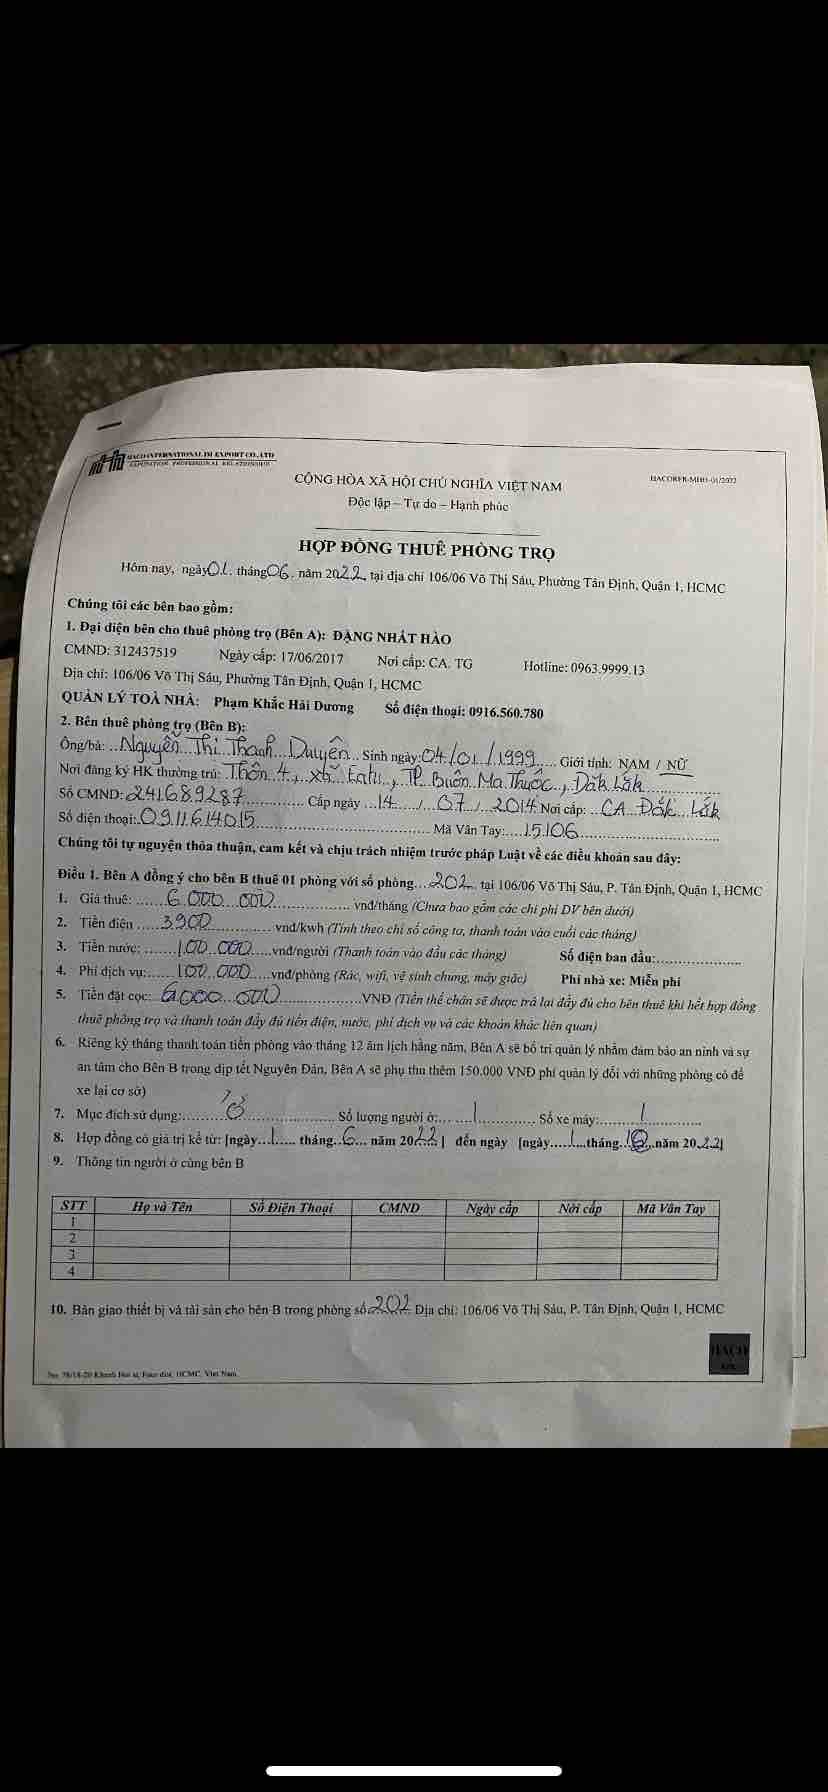 HACO INTERNATIONAL IM EXPORT CO., LTD
EXPEDITION PROFESSIONAL RELATIONSHIP
HACORFR-MH01-01/2022
CỘNG HÒA XÃ HỘI CHỦ NGHĨA VIỆT NAM
Độc lập – Tự do – Hạnh phúc
HỢP ĐỒNG THUÊ PHÒNG TRỌ
Hôm nay, ngày 01. tháng 06. năm 2022 tại địa chỉ 106/06 Võ Thị Sáu, Phường Tân Định, Quận 1, HCMC
Chúng tôi các bên bao gồm:
1. Đại diện bên cho thuê phòng trọ (Bên A): ĐẶNG NHẤT HÀO
CMND: 312437519 Ngày cấp: 17/06/2017 Nơi cấp: CA. TG Hotline: 0963.9999.13
Địa chỉ: 106/06 Võ Thị Sáu, Phường Tân Định, Quận 1, HCMC
QUẢN LÝ TOÀ NHÀ: Phạm Khắc Hải Dương Số điện thoại: 0916.560.780
2. Bên thuê phòng trọ (Bên B):
Ông/bà: Nguyễn Thị Thanh Duyên Sinh ngày: 04/01/1999 Giới tính: NAM / NỮ
Nơi đăng ký HK thường trú: Thôn 4, xã Eatu, TP. Buôn Ma Thuộc, Đăk Lăk
Số CMND: 241689287 Cấp ngày 14 / 07 / 2014 Nơi cấp: CA Đắk Lắk
Số điện thoại: 0911614015 Mã Vân Tay: 15106
Chúng tôi tự nguyện thỏa thuận, cam kết và chịu trách nhiệm trước pháp Luật về các điều khoản sau đây:
Điều 1. Bên A đồng ý cho bên B thuê 01 phòng với số phòng 202 tại 106/06 Võ Thị Sáu, P. Tân Định, Quận 1, HCMC
1. Giá thuê: 6.000.000 vnđ/tháng (Chưa bao gồm các chi phí DV bên dưới)
2. Tiền điện 3900 vnđ/kwh (Tính theo chỉ số công tơ, thanh toán vào cuối các tháng)
3. Tiền nước: 100.000 vnđ/người (Thanh toán vào đầu các tháng) Số điện ban đầu:
4. Phí dịch vụ: 100.000 vnđ/phòng (Rác, wifi, vệ sinh chung, máy giặc) Phí nhà xe: Miễn phí
5. Tiền đặt cọc: 6.000.000 VNĐ (Tiền thế chân sẽ được trả lại đầy đủ cho bên thuê khi hết hợp đồng
thuê phòng trọ và thanh toán đầy đủ tiền điện, nước, phí dịch vụ và các khoản khác liên quan)
6. Riêng kỳ tháng thanh toán tiền phòng vào tháng 12 âm lịch hằng năm, Bên A sẽ bố trí quản lý nhằm đảm bảo an ninh và sự
an tâm cho Bên B trong dịp tết Nguyên Đán, Bên A sẽ phụ thu thêm 150.000 VNĐ phí quản lý đối với những phòng có để
xe lại cơ sở)
7. Mục đích sử dụng: Số lượng người ở: 1 Số xe máy: 1
8. Hợp đồng có giá trị kể từ: [ngày 1 tháng 6 năm 2022] đến ngày [ngày 1 tháng năm 2022]
9. Thông tin người ở cùng bên B
STT Họ và Tên Số Điện Thoại CMND Ngày cấp Nơi cấp Mã Vân Tay
1
2
3
4
10. Bàn giao thiết bị và tài sản cho bên B trong phòng số 202 Địa chỉ: 106/06 Võ Thị Sáu, P. Tân Định, Quận 1, HCMC
HACO